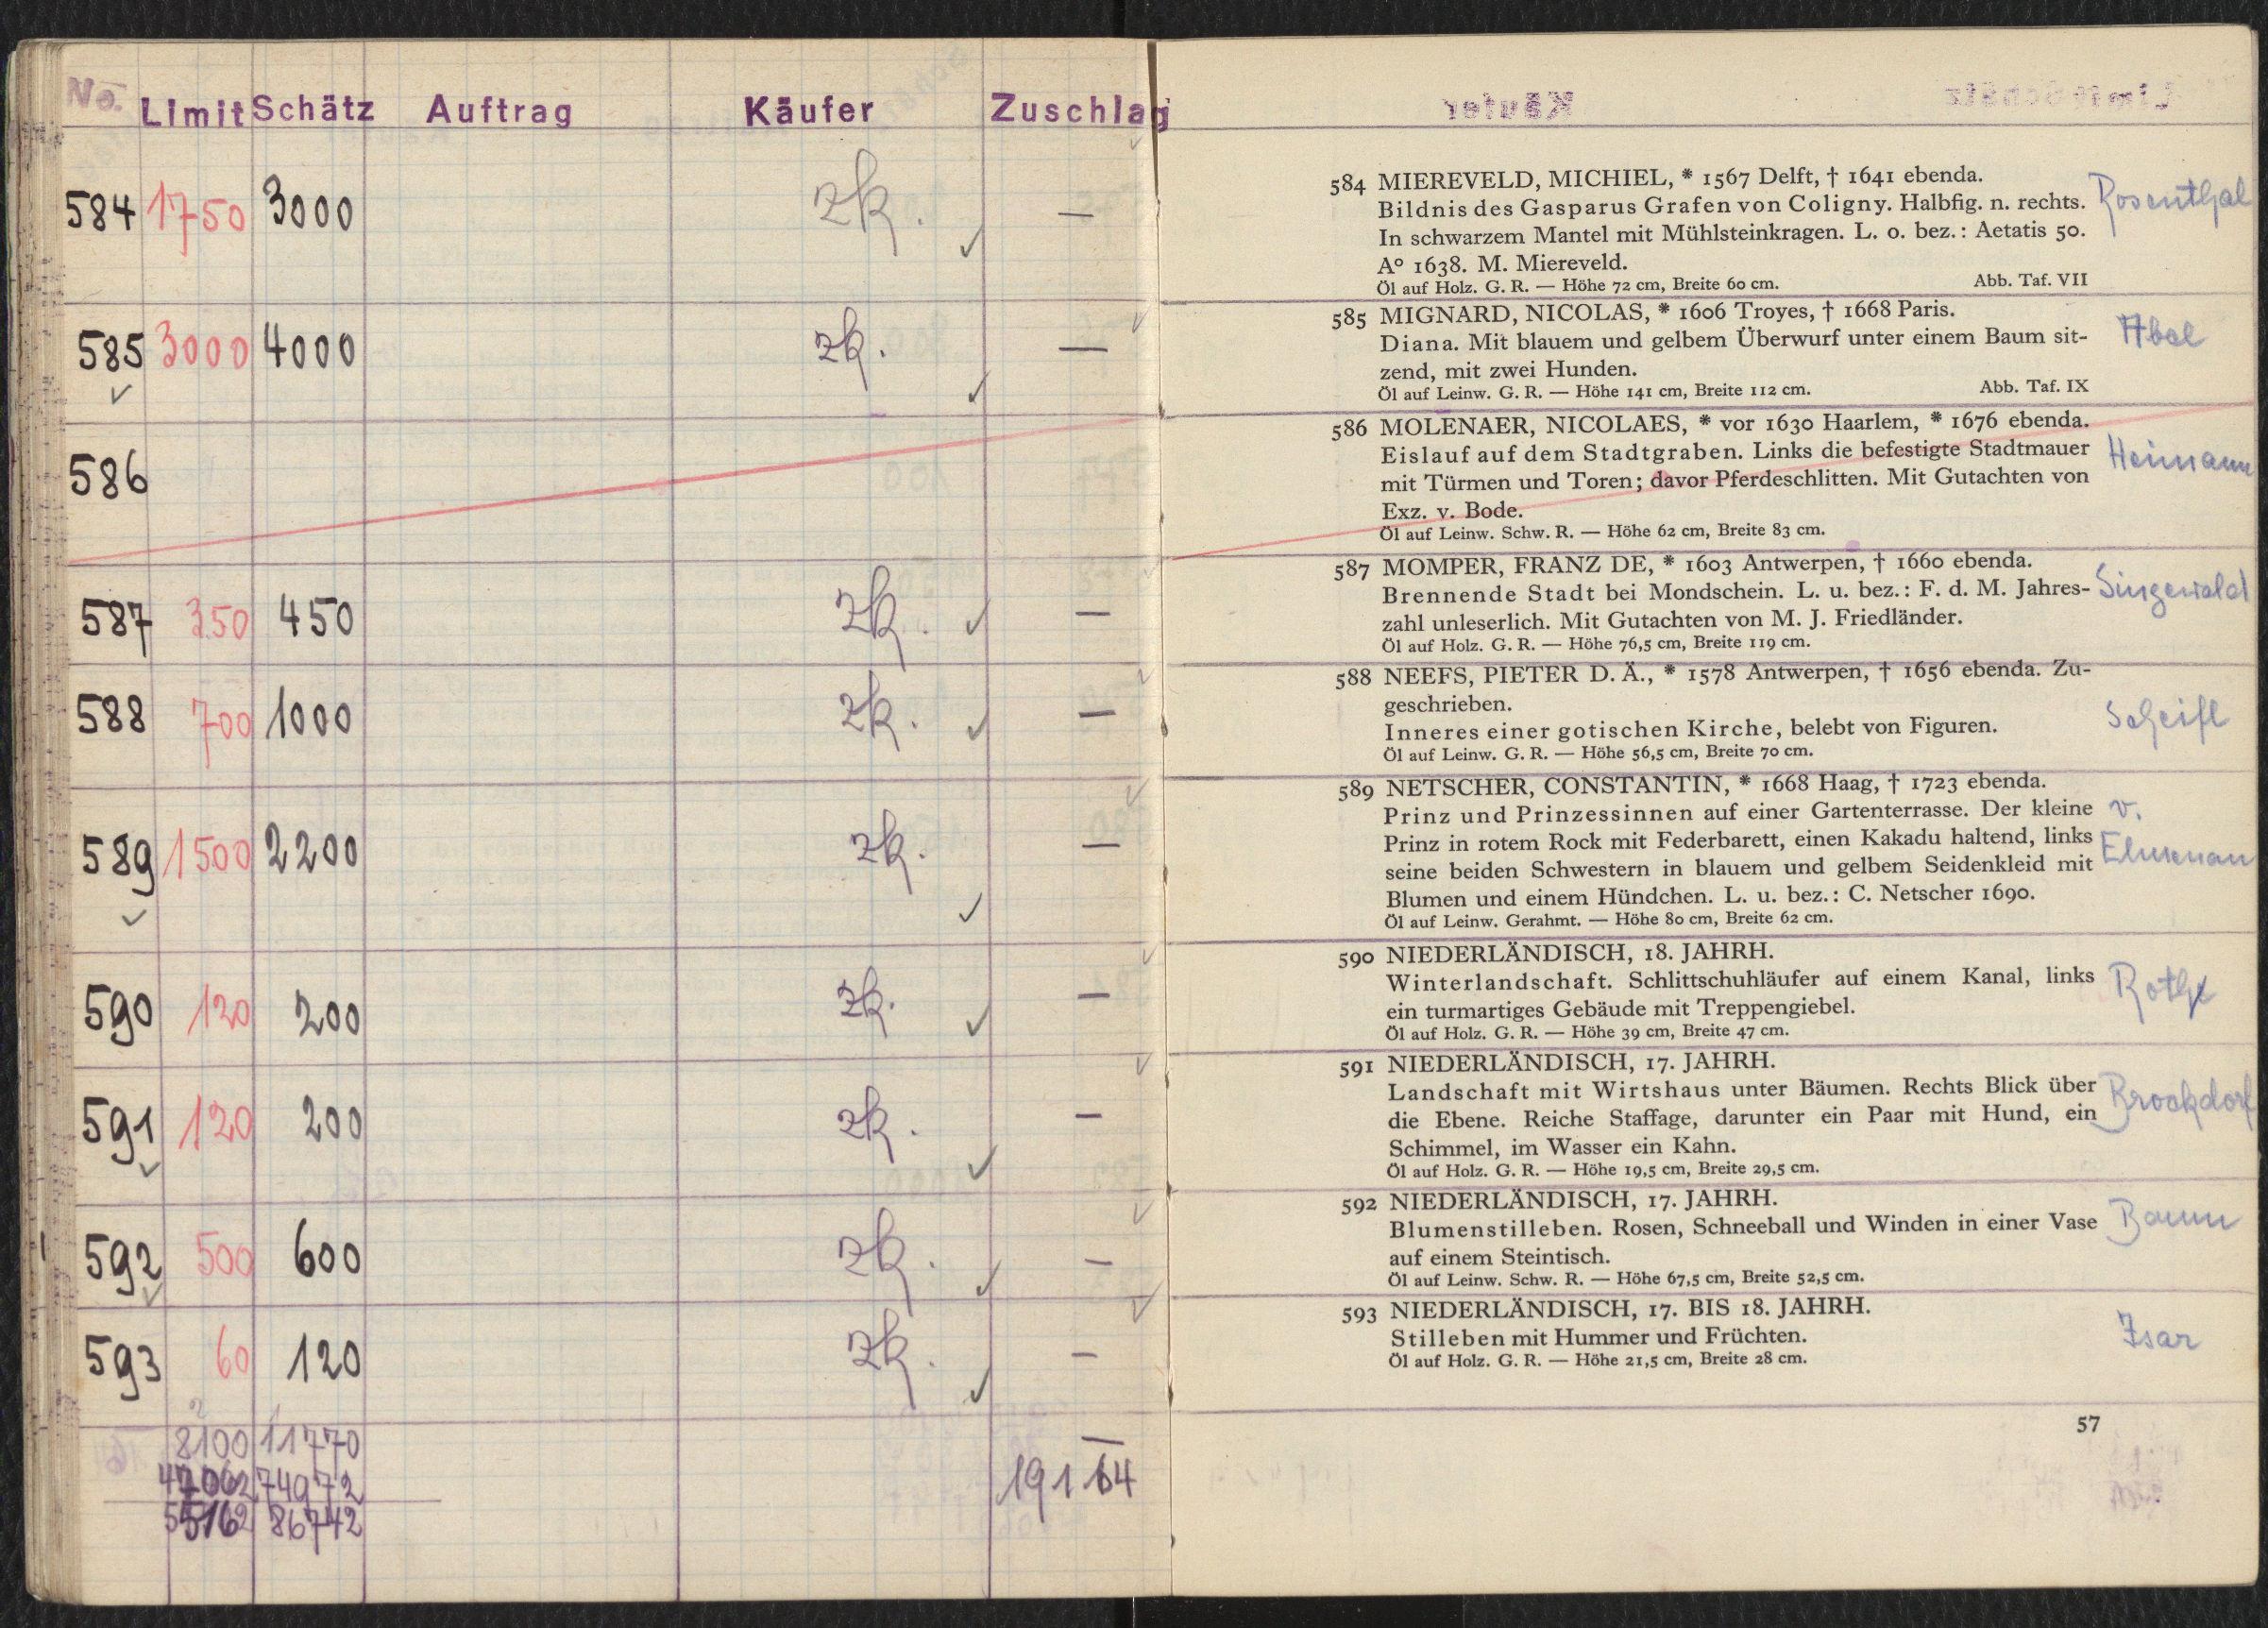 No. Limit Schätz Auftrag Käufer Zuschlag
584 1750 3000 zk. —
585 3000 4000 zk. —
586
587 350 450 zk. —
588 700 1000 zk. —
589 1500 2200 zk. —
590 120 200 zk. —
591 120 200 zk. —
592 500 600 zk. —
593 60 120 zk. —
8100 11770 —
47062 74972 19164
55162 86742
584 MIEREVELD, MICHIEL, * 1567 Delft, † 1641 ebenda.
Bildnis des Gasparus Grafen von Coligny. Halbfig. n. rechts. Rosenthal
In schwarzem Mantel mit Mühlsteinkragen. L. o. bez.: Aetatis 50.
A° 1638. M. Miereveld.
Öl auf Holz. G. R. — Höhe 72 cm, Breite 60 cm. Abb. Taf. VII
585 MIGNARD, NICOLAS, * 1606 Troyes, † 1668 Paris.
Diana. Mit blauem und gelbem Überwurf unter einem Baum sit- Abel
zend, mit zwei Hunden.
Öl auf Leinw. G. R. — Höhe 141 cm, Breite 112 cm. Abb. Taf. IX
586 MOLENAER, NICOLAES, * vor 1630 Haarlem, * 1676 ebenda.
Eislauf auf dem Stadtgraben. Links die befestigte Stadtmauer Heimann
mit Türmen und Toren; davor Pferdeschlitten. Mit Gutachten von
Exz. v. Bode.
Öl auf Leinw. Schw. R. — Höhe 62 cm, Breite 83 cm.
587 MOMPER, FRANZ DE, * 1603 Antwerpen, † 1660 ebenda.
Brennende Stadt bei Mondschein. L. u. bez.: F. d. M. Jahres- Singewald
zahl unleserlich. Mit Gutachten von M. J. Friedländer.
Öl auf Holz. G. R. — Höhe 76,5 cm, Breite 119 cm.
588 NEEFS, PIETER D. Ä., * 1578 Antwerpen, † 1656 ebenda. Zu-
geschrieben.
Inneres einer gotischen Kirche, belebt von Figuren.
Öl auf Leinw. G. R. — Höhe 56,5 cm, Breite 70 cm.
589 NETSCHER, CONSTANTIN, * 1668 Haag, † 1723 ebenda.
Prinz und Prinzessinnen auf einer Gartenterrasse. Der kleine v.
Prinz in rotem Rock mit Federbarett, einen Kakadu haltend, links
seine beiden Schwestern in blauem und gelbem Seidenkleid mit
Blumen und einem Hündchen. L. u. bez.: C. Netscher 1690.
Öl auf Leinw. Gerahmt. — Höhe 80 cm, Breite 62 cm.
590 NIEDERLÄNDISCH, 18. JAHRH.
Winterlandschaft. Schlittschuhläufer auf einem Kanal, links Rothe
ein turmartiges Gebäude mit Treppengiebel.
Öl auf Holz. G. R. — Höhe 39 cm, Breite 47 cm.
591 NIEDERLÄNDISCH, 17. JAHRH.
Landschaft mit Wirtshaus unter Bäumen. Rechts Blick über Brockdorf
die Ebene. Reiche Staffage, darunter ein Paar mit Hund, ein
Schimmel, im Wasser ein Kahn.
Öl auf Holz. G. R. — Höhe 19,5 cm, Breite 29,5 cm.
592 NIEDERLÄNDISCH, 17. JAHRH.
Blumenstilleben. Rosen, Schneeball und Winden in einer Vase
auf einem Steintisch.
Öl auf Leinw. Schw. R. — Höhe 67,5 cm, Breite 52,5 cm.
593 NIEDERLÄNDISCH, 17. BIS 18. JAHRH.
Stilleben mit Hummer und Früchten. Isar
Öl auf Holz. G. R. — Höhe 21,5 cm, Breite 28 cm.
57